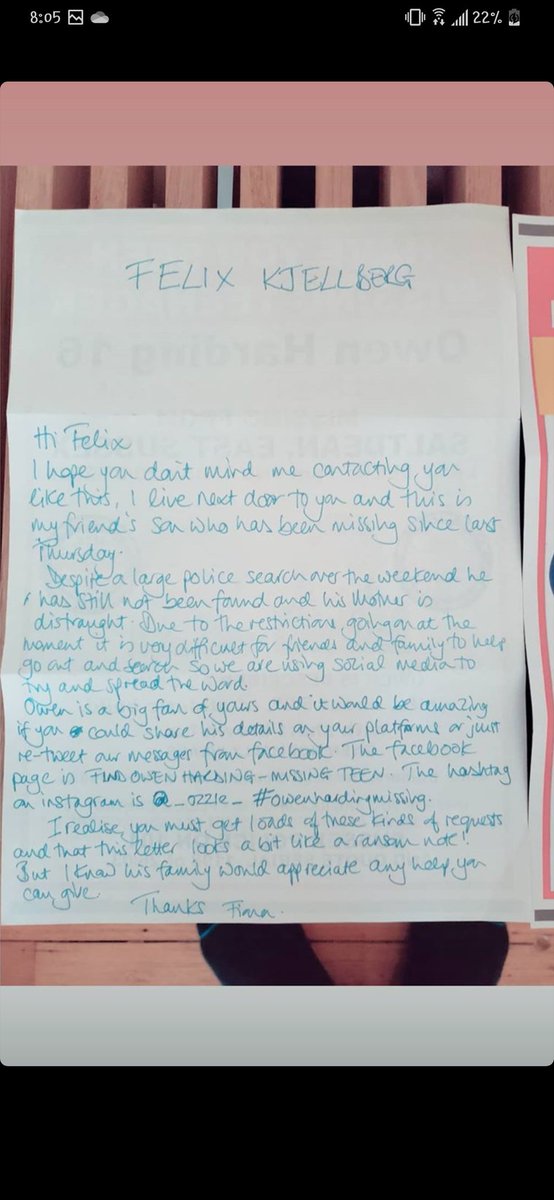 8:05
22%
FELIX KJELLBERG
Owen Harding 16
SALTDEAN, EAST SUSSEX
Hi Felix
I hope you don't mind me contacting you
like this, I live next door to you and this is
my friend's son who has been missing since last
Thursday.
Despite a large police search over the weekend he
has still not been found and his mother is
distraught. Due to the restrictions going on at the
moment it is very difficult for friends and family to help
go out and search so we are using social media to
try and spread the word.
Owen is a big fan of yours and it would be amazing
if you could share his details on your platforms or just
re-tweet our messages from facebook. The facebook
page is FIND OWEN HARDING - MISSING TEEN. The hashtag
on instagram is @_ozzie_ #owenhardingmissing.
I realise you must get loads of these kinds of requests
and that this letter looks a bit like a ransom note!
But I know his family would appreciate any help you
can give.
Thanks Fiona.